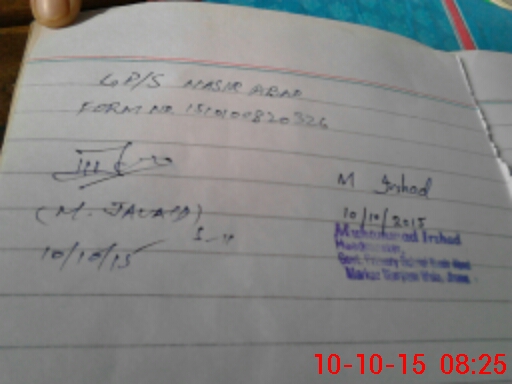 G P/S NASIR ABAD
FORM NO. 1510100820326
(M. JAVAID)
10/10/15
M Irshad
10/10/2015
Muhammad Irshad
Govt. Primary School
Markaz
10-10-15 08:25